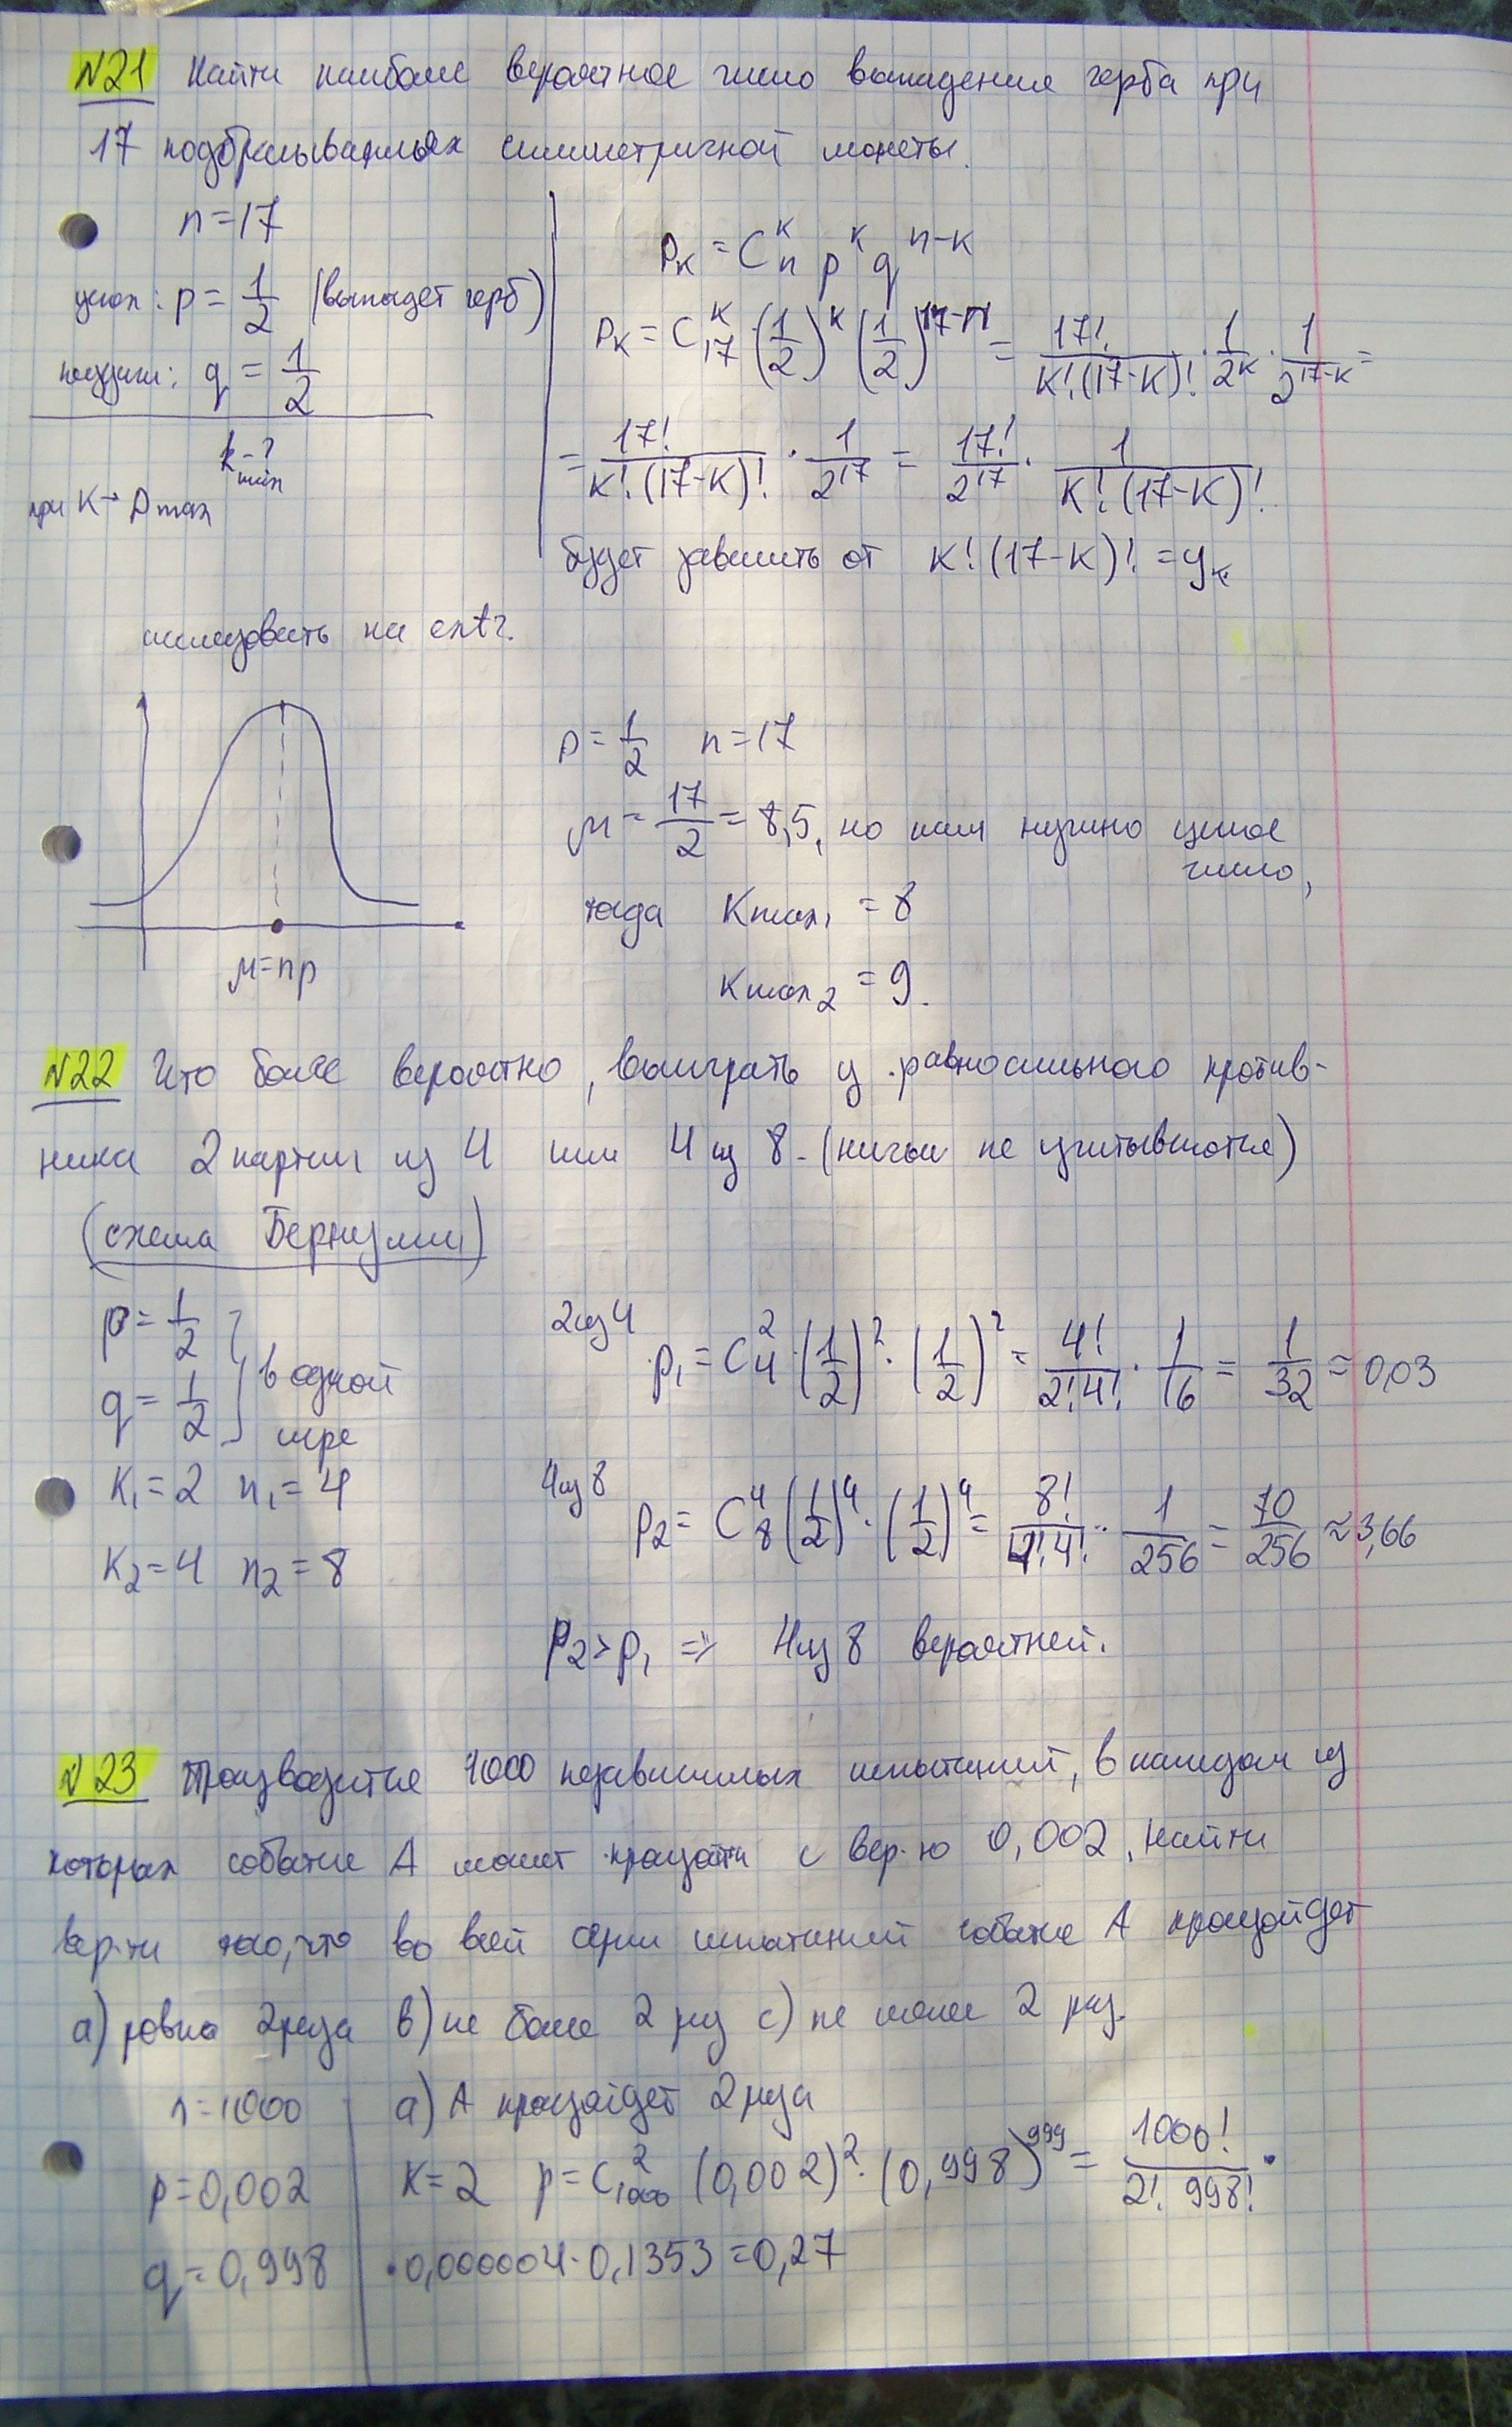 №21 Найти наиболее вероятное число выпадения герба при
17 подбрасываниях симметричной монеты.
n=17
успех: p = 1/2 (выпадет герб)
неудачи: q = 1/2
k min - ?
при K → Pmax
P_K = C_n^K p^K q^(n-K)
P_K = C_17^K · (1/2)^K (1/2)^(17-K) = 17!/(K!(17-K)!) · 1/2^K · 1/2^(17-K) =
= 17!/(K!(17-K)!) · 1/2^17 = 17!/2^17 · 1/(K!(17-K)!)
будет зависить от K!(17-K)! = y_K
исследовать на extr.
μ=np
p = 1/2 n=17
μ = 17/2 = 8,5, но нам нужно целое
число,
тогда Kmax1 = 8
Kmax2 = 9.
№22 Что более вероятно, выиграть у равносильного против-
ника 2 партии из 4 или 4 из 8 - (ничьи не учитываются)
(схема Бернулли)
p = 1/2
q = 1/2
} в одной
игре
K1=2 n1=4
K2=4 n2=8
2 из 4
p1 = C_4^2 · (1/2)^2 · (1/2)^2 = 4!/(2!4!) · 1/16 = 1/32 = 0,03
4 из 8
p2 = C_8^4 (1/2)^4 · (1/2)^4 = 8!/(4!4!) · 1/256 = 70/256 ≈ 3,66
p2 > p1 => 4 из 8 вероятней.
№23 Производится 1000 независимых испытаний, в каждом из
которых событие A может произойти с вер-ю 0,002. Найти
вер-ти того, что во всей серии испытаний событие A произойдет
a) ровно 2 раза b) не более 2 раз c) не менее 2 раз.
n=1000
p=0,002
q=0,998
a) A произойдет 2 раза
K=2 p = C_1000^2 (0,002)^2 · (0,998)^999 = 1000!/(2! 998!) ·
· 0,000004 · 0,1353 = 0,27